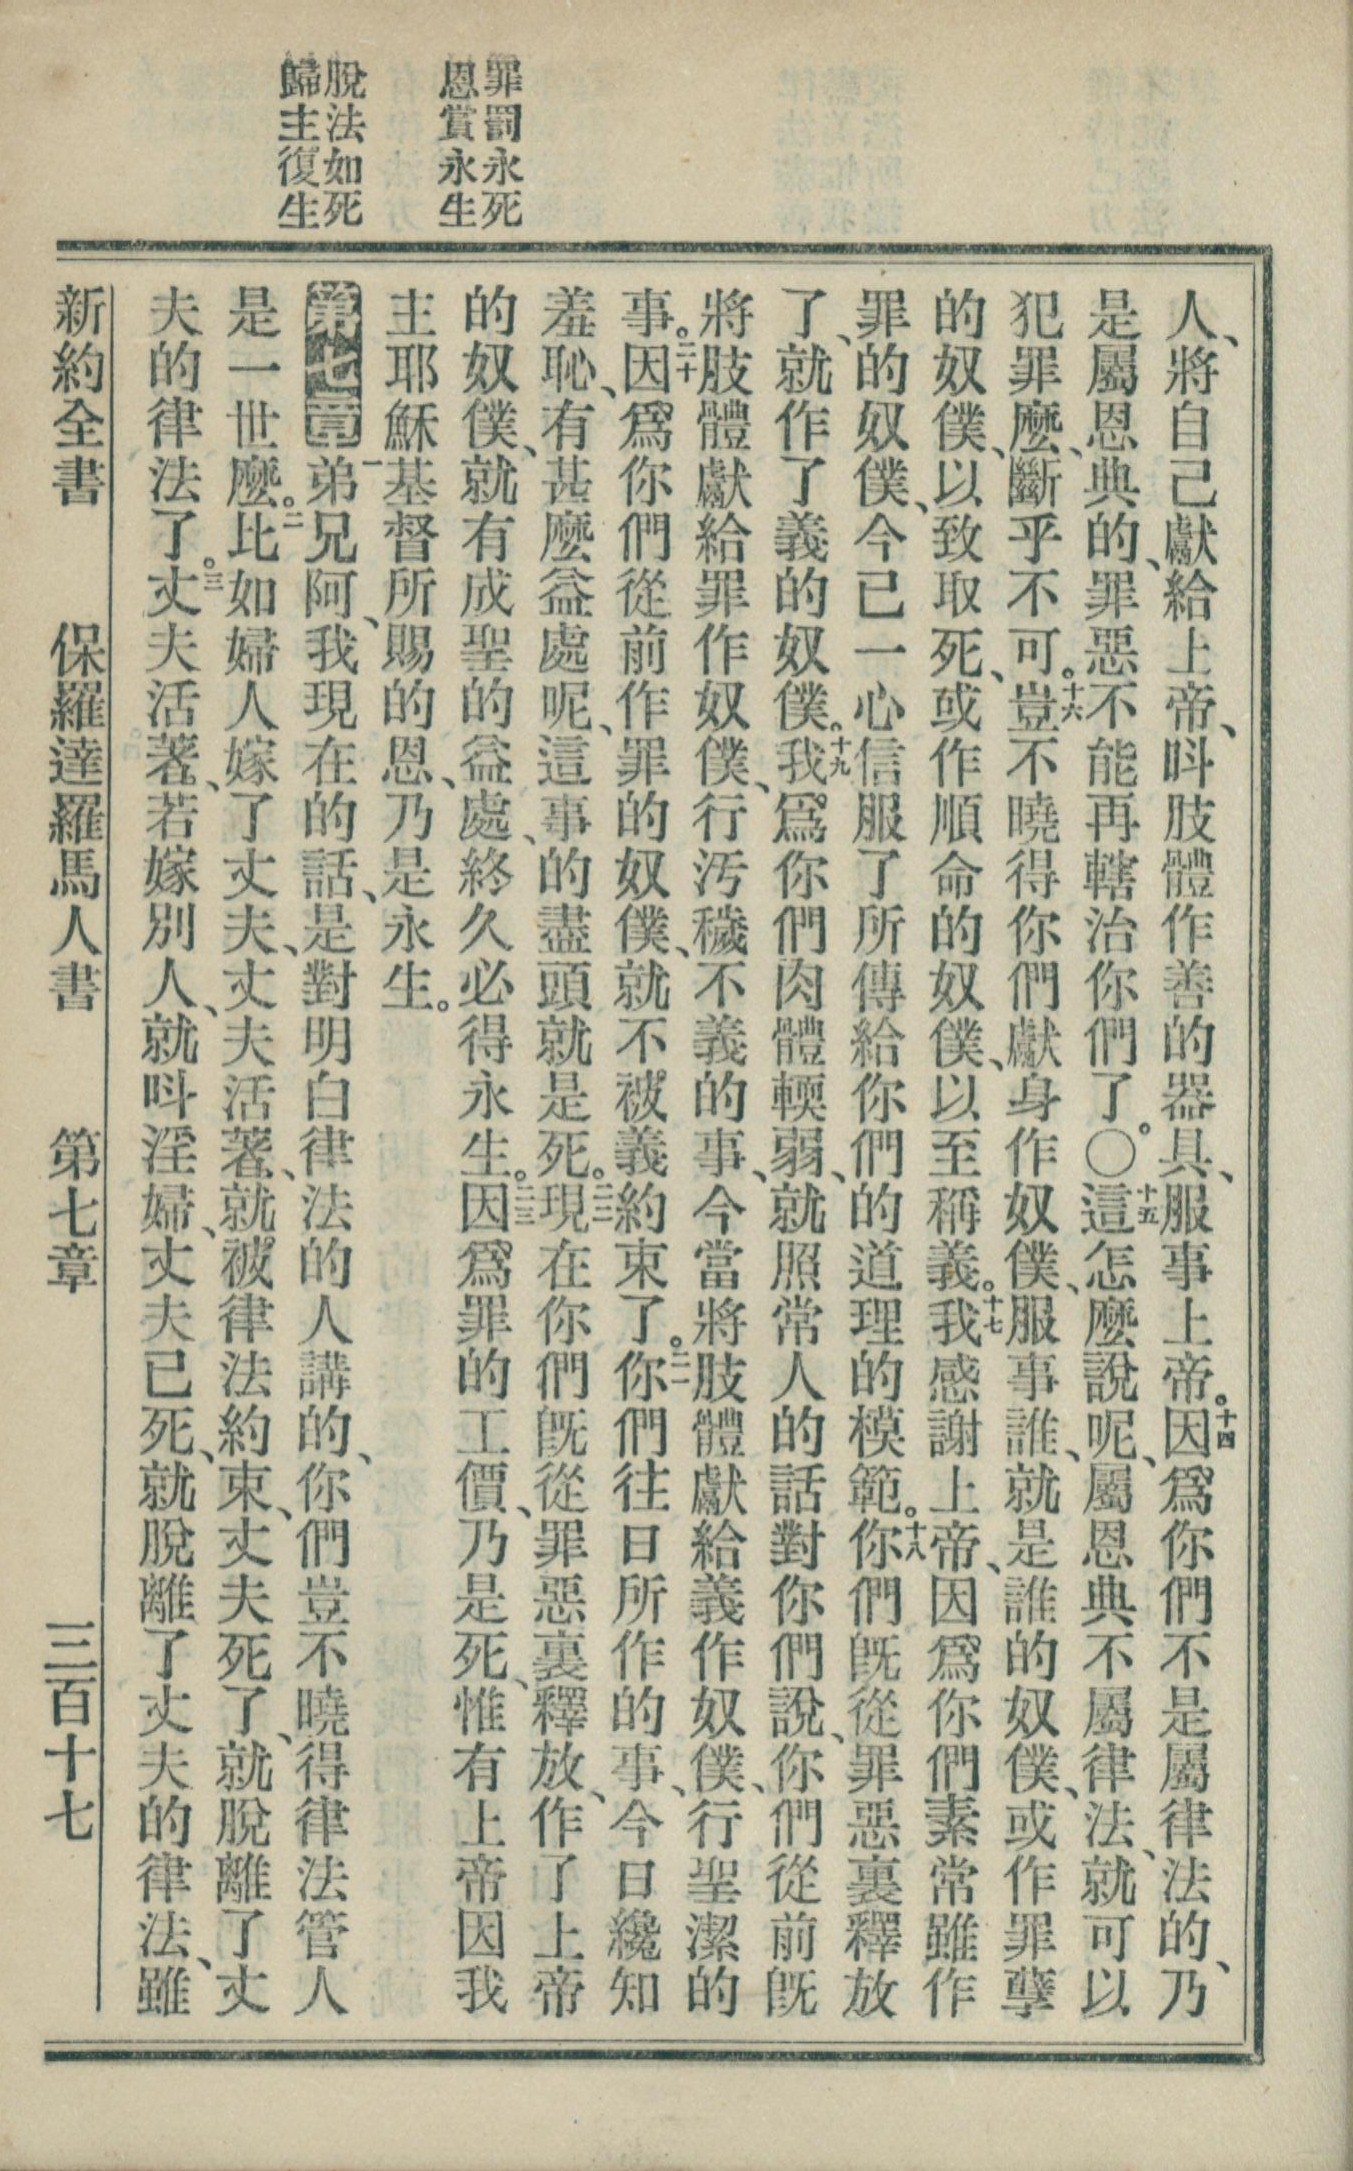 罪罰永死
恩賞永生
脫法如死
歸主復生
人、將自己獻給上帝、呌肢體作善的器具、服事上帝。十四因爲你們不是屬律法的、乃
是屬恩典的、罪惡不能再轄治你們了。〇十五這怎麽說呢、屬恩典不屬律法、就可以
犯罪麽、斷乎不可。十六豈不曉得你們獻身作奴僕、服事誰、就是誰的奴僕、或作罪孽
的奴僕、以致取死、或作順命的奴僕、以至稱義。十七我感謝上帝、因爲你們素常雖作
罪的奴僕、今已一心信服了所傳給你們的道理的模範。十八你們旣從罪惡裏釋放
了、就作了義的奴僕。十九我爲你們肉體輭弱、就照常人的話對你們說、你們從前旣
將肢體獻給罪作奴僕、行汚穢不義的事、今當將肢體獻給義作奴僕、行聖潔的
事。二十因爲你們從前作罪的奴僕、就不被義約束了。二一你們往日所作的事、今日纔知
羞恥、有甚麽益處呢、這事的盡頭就是死。二二現在你們旣從罪惡裏釋放、作了上帝
的奴僕、就有成聖的益處、終久必得永生。二三因爲罪的工價、乃是死、惟有上帝因我
主耶穌基督所賜的恩、乃是永生。
第七章一弟兄阿、我現在的話、是對明白律法的人講的、你們豈不曉得律法管人
是一世麽。二比如婦人嫁了丈夫、丈夫活著、就被律法約束、丈夫死了、就脫離了丈
夫的律法了。三丈夫活著、若嫁別人、就呌淫婦、丈夫已死、就脫離了丈夫的律法、雖
新約全書 保羅達羅馬人書 第七章 三百十七